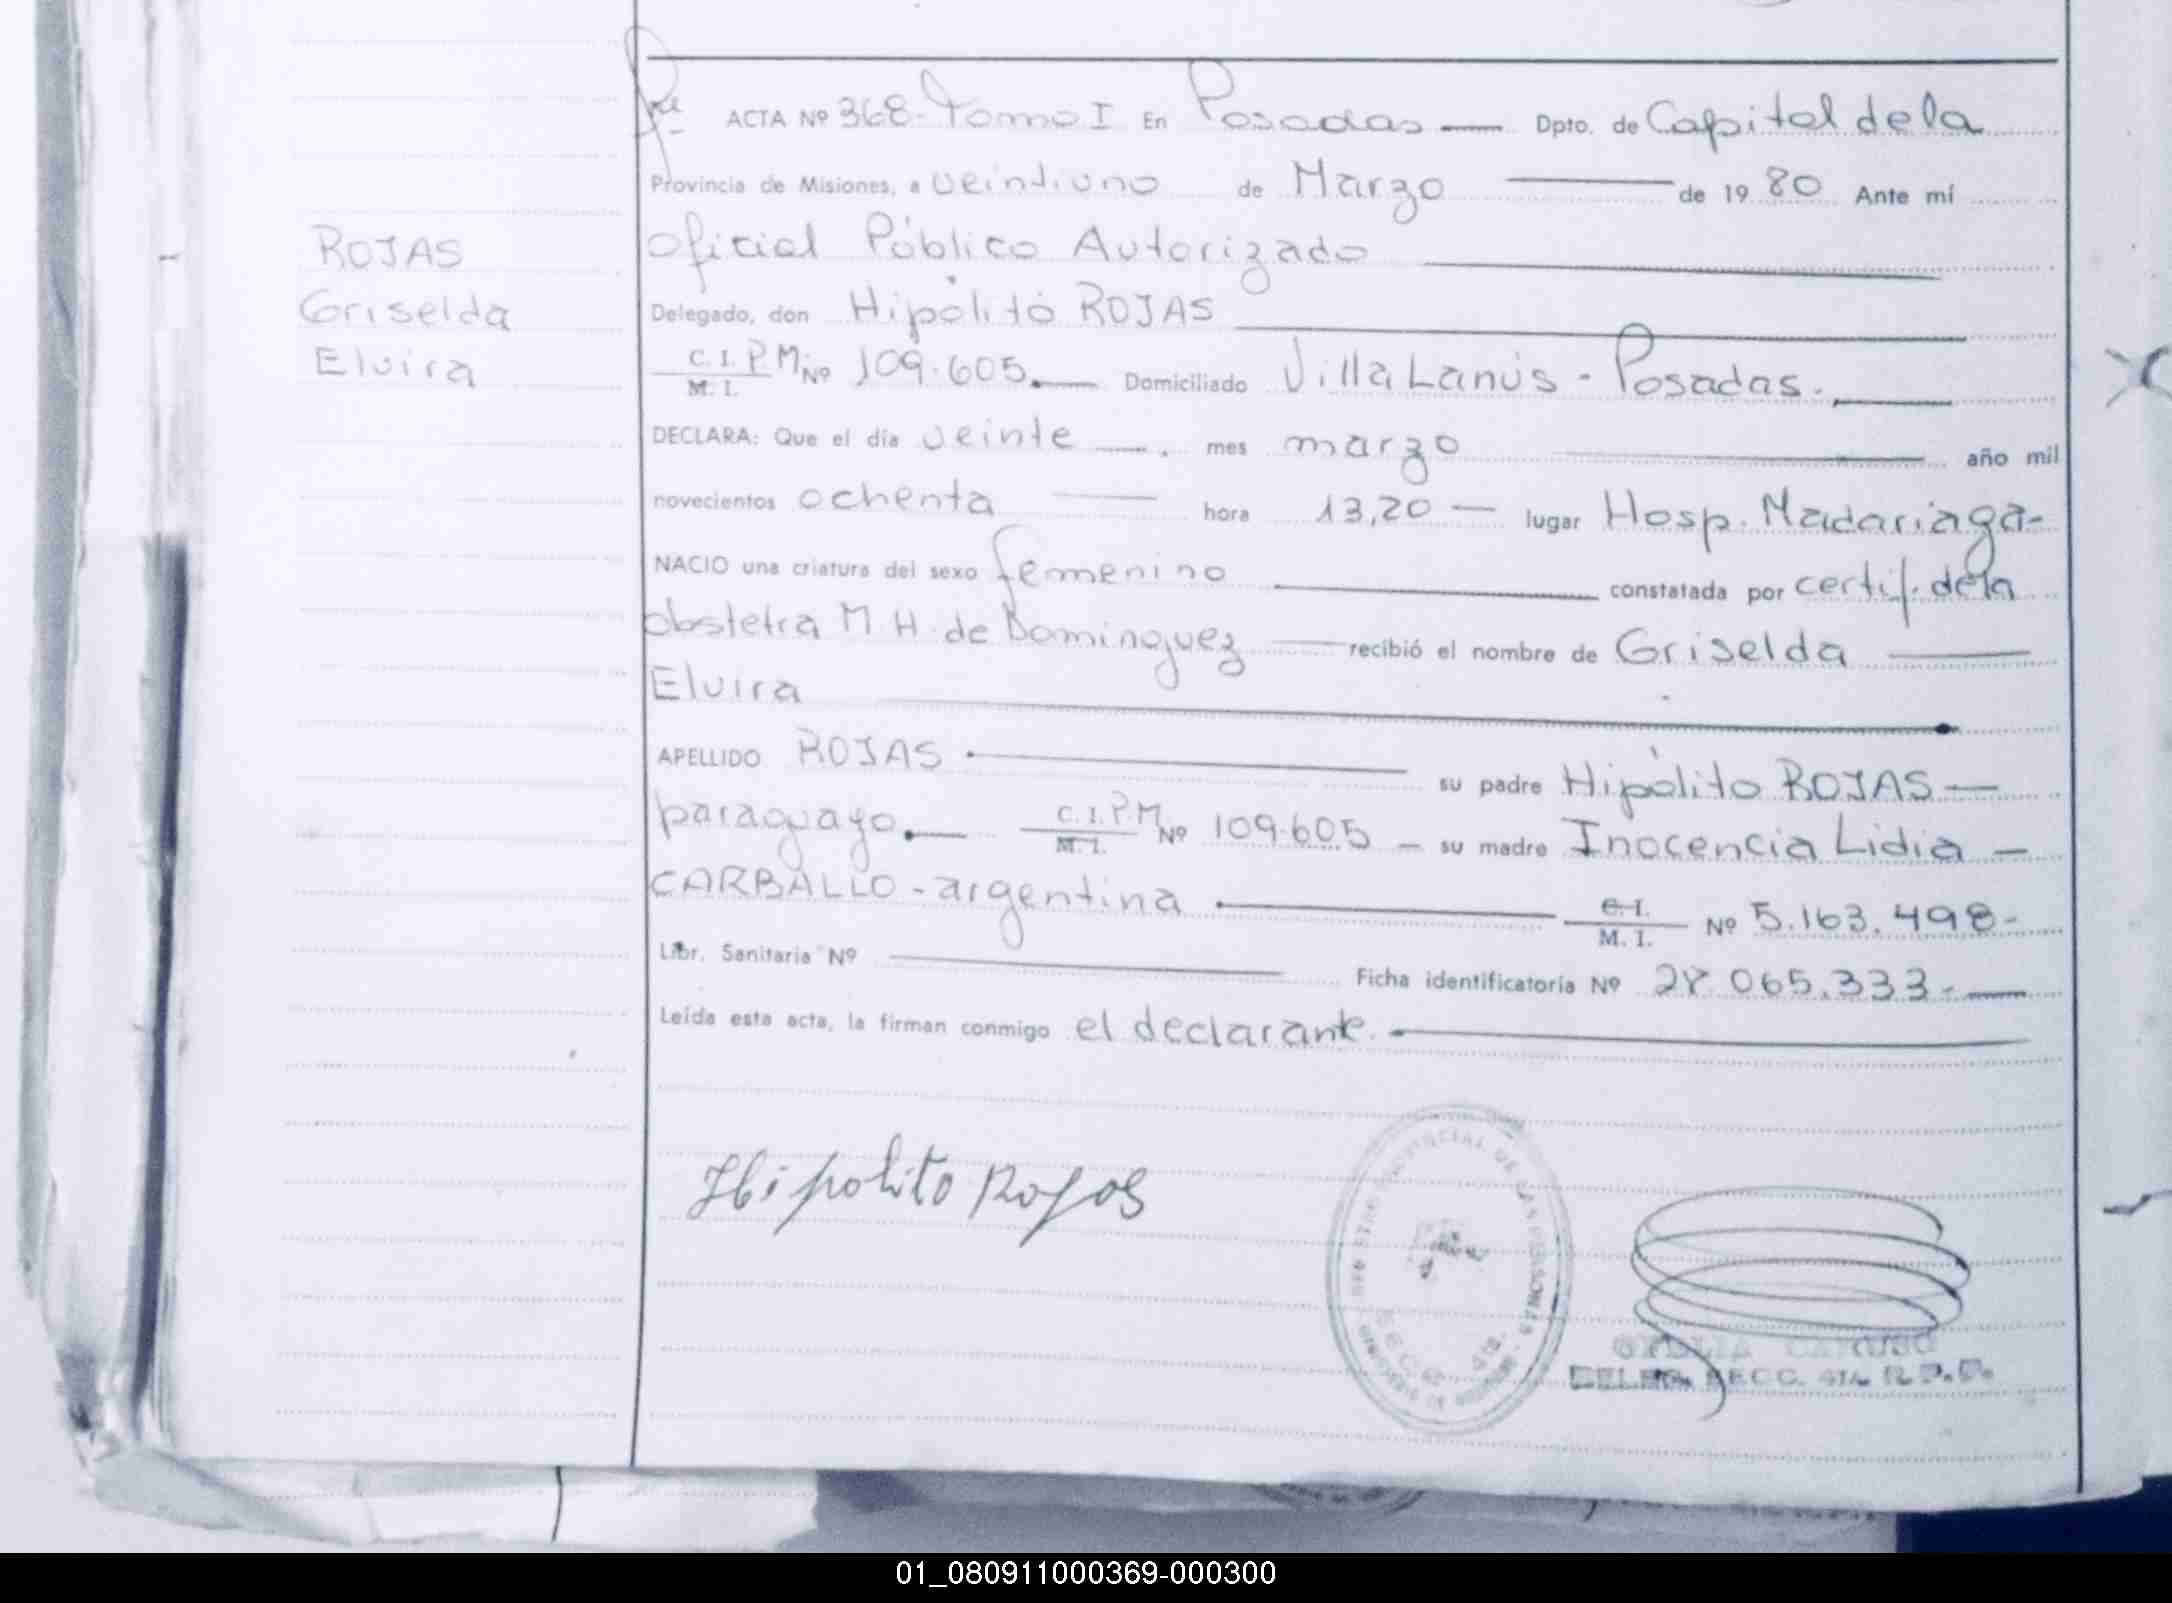 ACTA Nº 368- Tomo I En Posadas — Dpto. de Capital de la
Provincia de Misiones, a veintiuno de Marzo — de 1980 Ante mí
Oficial Público Autorizado
ROJAS
Griselda
Elvira
Delegado, don Hipólito ROJAS
C. I. P.M. Nº 109.605.— Domiciliado Villa Lanús - Posadas.
M. I.
DECLARA: Que el día veinte —. mes marzo — año mil
novecientos ochenta — hora 13,20 — lugar Hosp. Madariaga-
NACIO una criatura del sexo femenino — constatada por certif. de la
obstetra M. H. de Dominguez — recibió el nombre de Griselda —
Elvira
APELLIDO ROJAS — su padre Hipólito ROJAS —
paraguayo.— C. I. P.M. Nº 109.605 — su madre Inocencia Lidia —
M. I.
CARBALLO - argentina — C. I. Nº 5.163.498-
M. I.
Libr. Sanitaria Nº — Ficha identificatoria Nº 28.065.333.-—
Leída esta acta, la firman conmigo el declarante.
Hipolito Rojas
DELEG. SECC. 4ta R.P.P.
01_080911000369-000300